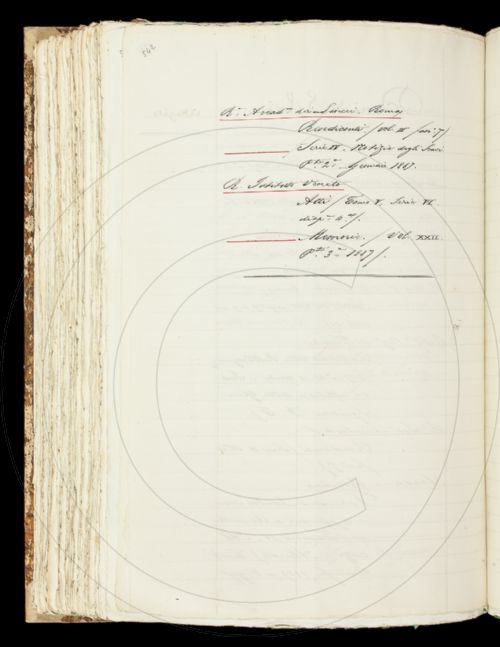 562
R.ª Accad.ª dei Lincei. Roma
Rendiconti / Vol. III fasc. 7/
Serie IV. Notizie degli Scavi
Gennaio 1887.
R. Istituto Veneto
Atti / Tomo V, Serie VI
disp.ª 4.ª /.
Memorie. / Vol. XXII.
P.te 3.ª 1887 /.